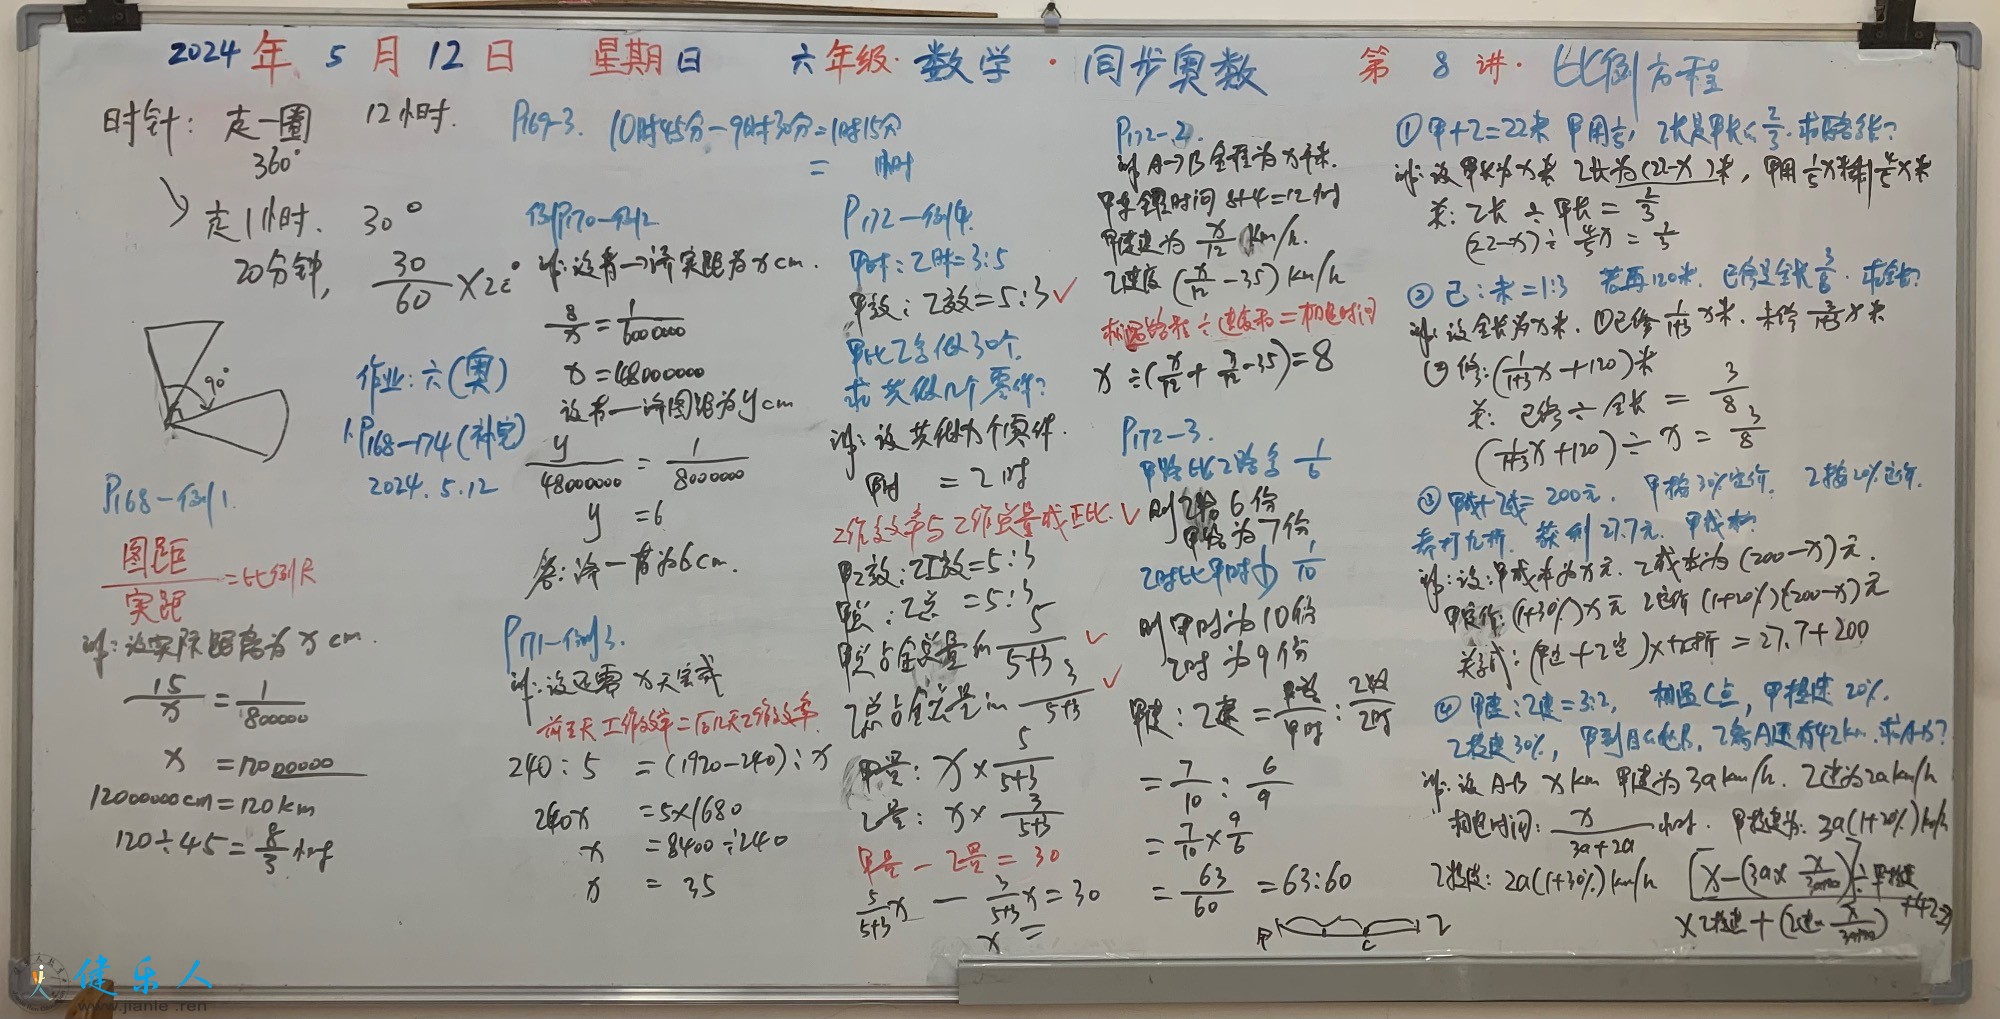 2024年5月12日 星期日 六年级·数学·同步奥数 第8讲·比例方程
时针: 走一圈 12小时.
360°
走1小时. 30°
20分钟, 30/60 ×20°
90°
作业:六(奥)
1.P168-174(补完)
2024.5.12
P168-例1.
图距/实距=比例尺
解:设实际距离为x cm.
15/x = 1/800000
x =12000000
12000000cm=120km
120÷45=8/3小时
P169-3. 10时45分-9时30分=1时15分
= 小时
例P170-例2
8/x = 1/6000000
x =48000000
y/48000000 = 1/8000000
y =6
P171-例3.
解:设还需x天完成
前5天工作效率=后几天工作效率
240:5 =(1920-240):x
240x =5×1680
x =8400÷240
x = 35
P172-例4.
甲时:乙时=3:5
甲效:乙效=5:3✓
甲比乙多做30个.
求共做几个零件?
解:设共做x个零件.
甲时 =乙时
工作效率与工作总量成正比.✓
甲工效:乙工效=5:3
甲总:乙总 =5:3
甲总占全总量的 5/(5+3) ✓
乙总占全总量的 3/(5+3) ✓
甲量: x× 5/(5+3)
乙量: x× 3/(5+3)
甲量-乙量= 30
5/(5+3) x - 3/(5+3) x =30
x =
P172-2.
解A→B全程为x千米.
甲走全程时间 8+4=12小时
甲速度为 x/12 km/h.
乙速度(x/12 -35)km/h
相遇路程÷速度和=相遇时间
x÷(x/12 + x/12 -35)=8
P172-3.
甲路比乙路多 1/6
则乙路6份
甲路为7份
乙时比甲时少 1/10
则甲时为10份
乙时为9份
甲速:乙速=甲路/甲时:乙路/乙时
= 7/10 : 6/9
= 7/10 × 9/6
= 63/60 =63:60
甲 C 乙
①甲+乙=22米 甲用1/5, 乙长是甲长的2/3.求
解:设甲长为x米 乙长为(22-x)米, 甲用1/5x米剩4/5x米
关: 乙长÷甲长= 2/3
(22-x)÷4/5x = 2/3
②已:未=1:3 若再120米. 已修是全长3/8. 求全长?
解:设全长为x米. ①已修 1/(1+3) x米. 未修 3/(1+3) x米
②修:(1/(1+3) x+120)米
关: 已修÷全长 = 3/8
(1/(1+3) x+120)÷x = 3/8
③甲成+乙成=200元. 甲按30%定价. 乙按20%定价.
都打九折. 获利27.7元. 甲成本?
解:设:甲成本为x元. 乙成本为(200-x)元.
甲定价:(1+30%)x元 乙定价(1+20%)(200-x)元
关系式:(甲定+乙定)×九折=27.7+200
④甲速:乙速=3:2, 相遇C点, 甲提速20%.
乙提速30%, 甲到B, 乙离A还有42km.求A-B?
解:设A-B x km 甲速为3a km/h. 乙速为2a km/h
相遇时间: x/(3a+2a) 小时. 甲提速为: 3a(1+20%)km/h
乙提速: 2a(1+30%)km/h [x-(3a× x/(3a+2a))]÷甲提速
×乙提速+(2a× x/(3a+2a)) +42=x
健乐人
www.jianle.ren